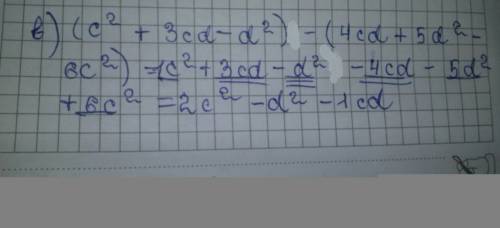 в) (c² + 3cd - d²) - (4cd + 5d² -
6c²) = 1c² + 3cd - d² - 4cd - 5d²
+ 6c² = 2c² - d² - 1cd